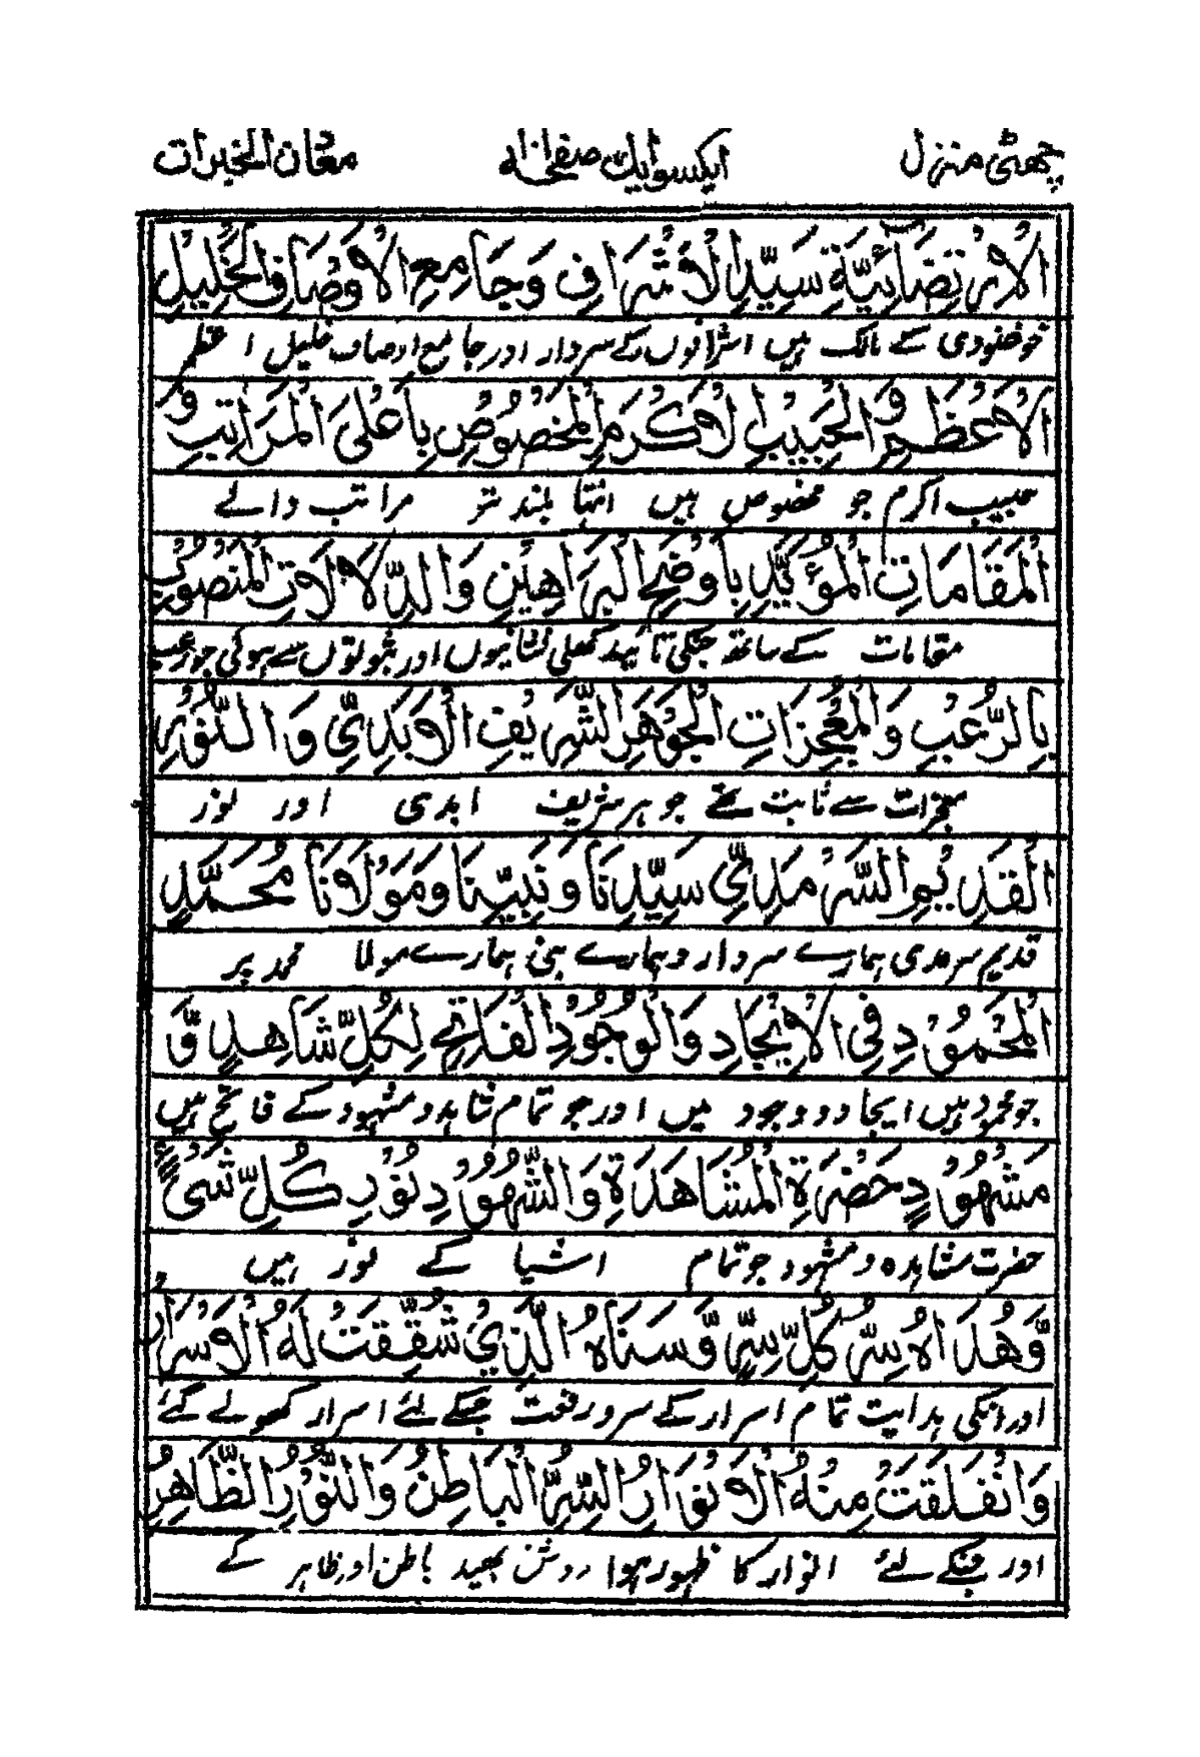 چھٹی منزل ایکسو ایک صفحات مغان الخیرات
الْاِرْتِضَائِيَّةِ سَيِّدِ الْاَشْرَافِ وَجَامِعِ الْاَوْصَافِ الْخَلِيْلِ
خوشنودی کے مالک ہیں اشرافوں کے سردار اور جامع اوصاف خلیل اعظم
الْاَعْظَمِ وَالْحَبِيْبِ الْاَكْرَمِ الْمَخْصُوْصِ بِاَعْلَى الْمَرَاتِبِ وَ
حبیب اکرم جو مخصوص ہیں انتہا بلند تر مراتب والے
الْمَقَامَاتِ الْمُؤَيَّدِ بِاَوْضَحِ الْبَرَاهِيْنِ وَالدَّلَالَاتِ الْمَنْصُوْرِ
مقامات کے ساتھ جنکی تائید کھلی نشانیوں اور ثبوتوں سے ہوئی جو رعب
بِالرُّعْبِ وَالْمُعْجِزَاتِ الْجَوْهَرِ الشَّرِيْفِ الْاَبَدِيِّ وَالنُّوْرِ
معجزات سے ثابت تھے جوہر شریف ابدی اور نور
الْقَدِيْمِ السَّرْمَدِيِّ سَيِّدِنَا وَنَبِيِّنَا وَمَوْلَانَا مُحَمَّدٍ
قدیم سرمدی ہمارے سردار و ہمارے نبی ہمارے مولا محمد پر
الْمَحْمُوْدِ فِي الْاِيْجَادِ وَالْوُجُوْدِ الْفَاتِحِ لِكُلِّ شَاهِدٍ وَّ
جو محمود ہیں ایجاد و وجود میں اور جو تمام شاہد و مشہود کے فاتح ہیں
مَشْهُوْدٍ حَضْرَةِ الْمُشَاهَدَةِ وَالشُّهُوْدِ نُوْرِ كُلِّ شَيْءٍ
حضرت مشاہدہ و مشہود جو تمام اشیا کے نور ہیں
وَّهُدَاهُ سِرِّ كُلِّ سِرٍّ وَّسَنَاهُ الَّذِيْ شُقِّقَتْ لَهُ الْاَسْرَارُ
اور انکی ہدایت تمام اسرار کے سر و رفعت جنکے لئے اسرار کھولے گئے
وَانْفَلَقَتْ مِنْهُ الْاَنْوَارُ السِّرُّ الْبَاطِنُ وَالنُّوْرُ الظَّاهِرُ
اور جنکے لئے انوار کا ظہور ہوا روشن بھید باطن اور ظاہر کے